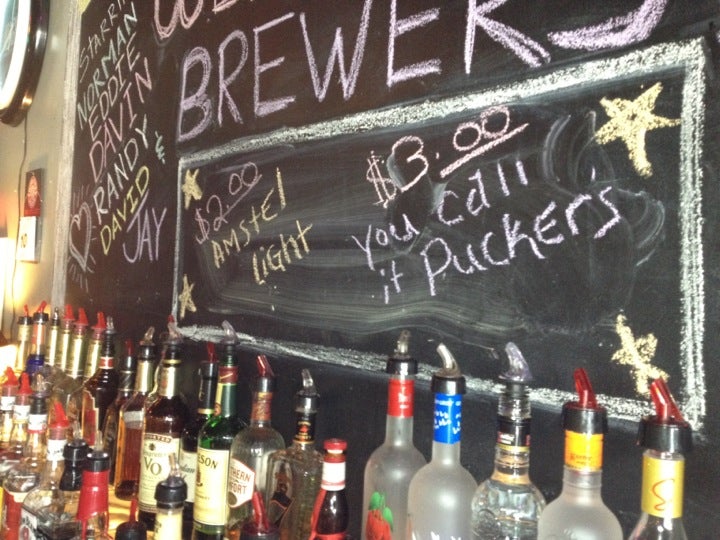 STARRIN
NORMAN
EDDIE
DAVIN
RANDY &
DAVID
JAY
BREWERS
$2.00
AMSTEL
Light
$3.00
You call
it Pucker's
VO
SON
THERN
ORT